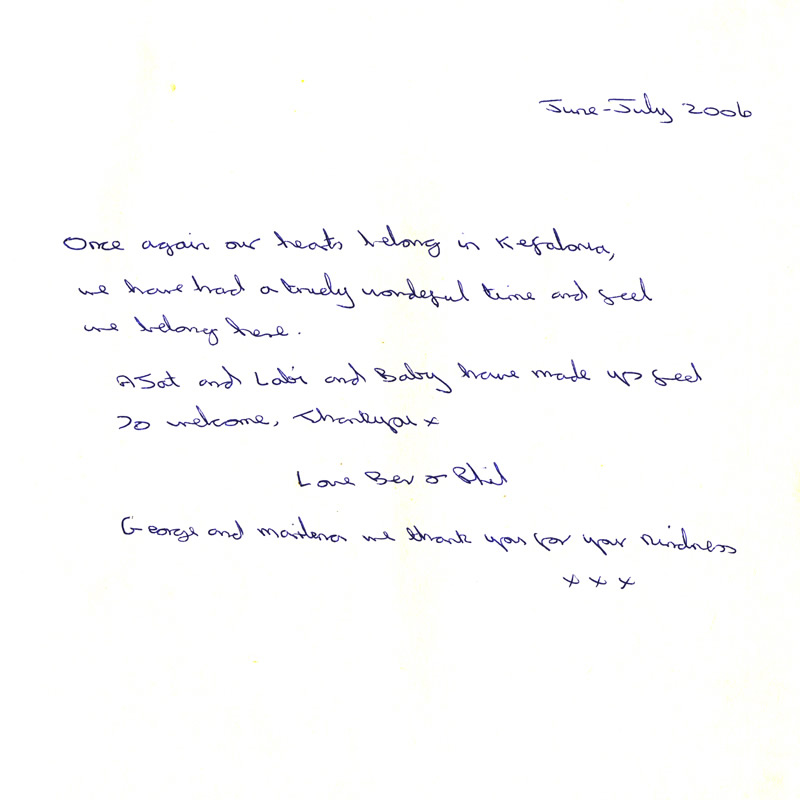 June-July 2006
Once again our hearts belong in Kefalonia,
we have had a truely wondeful time and feel
we belong here.
ASat and Labi and Baby have made us feel
so welcome, Thankyou x
Love Bev & Phil
George and mailena we thank you for your kindness
x x x